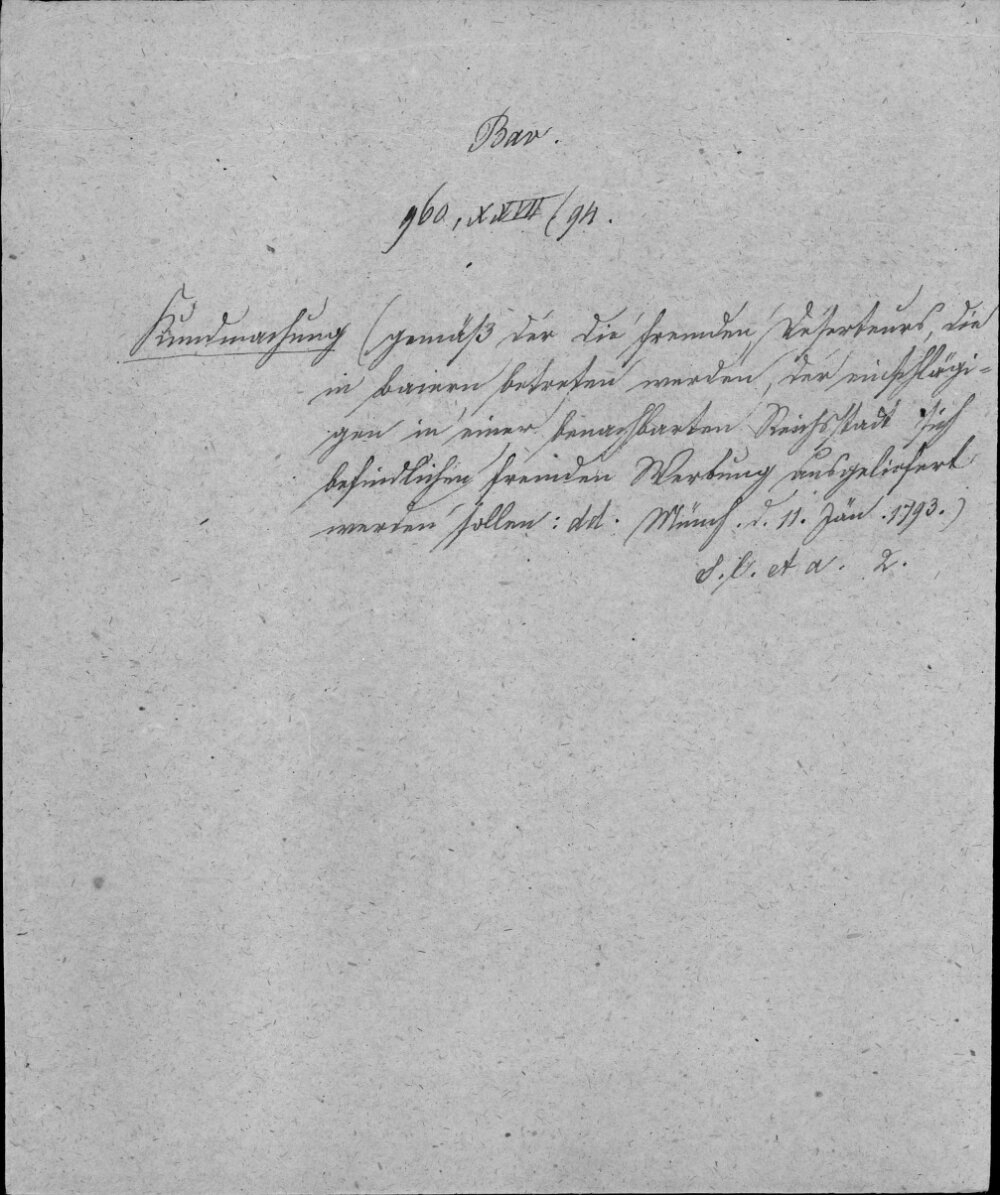 Bav.
960, XXVII (94.
Kundmachung (gemäß der die fremden Deserteurs, die
in Baiern betreten werden, der einschlägi-
gen in einer benachbarten Reichsstadt sich
befindlichen fremden Werbung ausgeliefert
werden sollen: dd. Münch. d. 11. Jän. 1793.)
S. l. et a. 2.